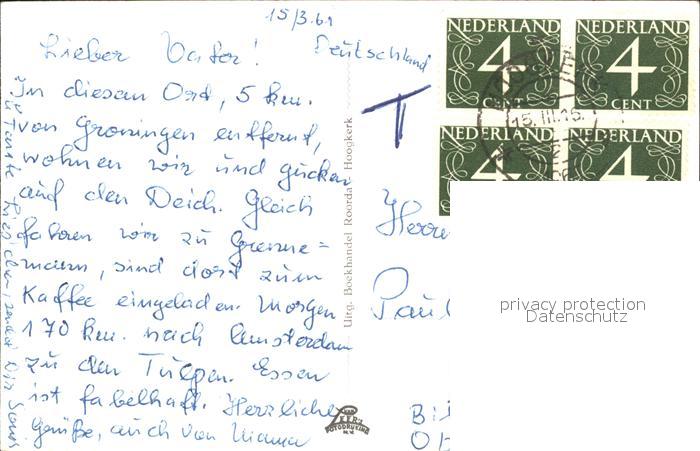 15/3.61
Lieber Vater!
Deutschland
In diesem Ort, 5 km.
von Groningen entfernt,
wohnen wir und gucken
auf den Deich. Gleich
fahren wir zu Grenne=
mann, sind dort zum
Kaffee eingeladen. Morgen
170 km. nach Amsterdam
zu den Tulpen. Essen
ist fabelhaft. Herzliche
Grüße, auch von Mama
u Tante
Uitg. Boekhandel Roorda - Hoogkerk
T
NEDERLAND
4
CENT
NEDERLAND
4
CENT
NEDERLAND
4
NEDERLAND
4
15.III.
Herrn
Paul
privacy protection
Datenschutz
FOTODRUK
N.V.